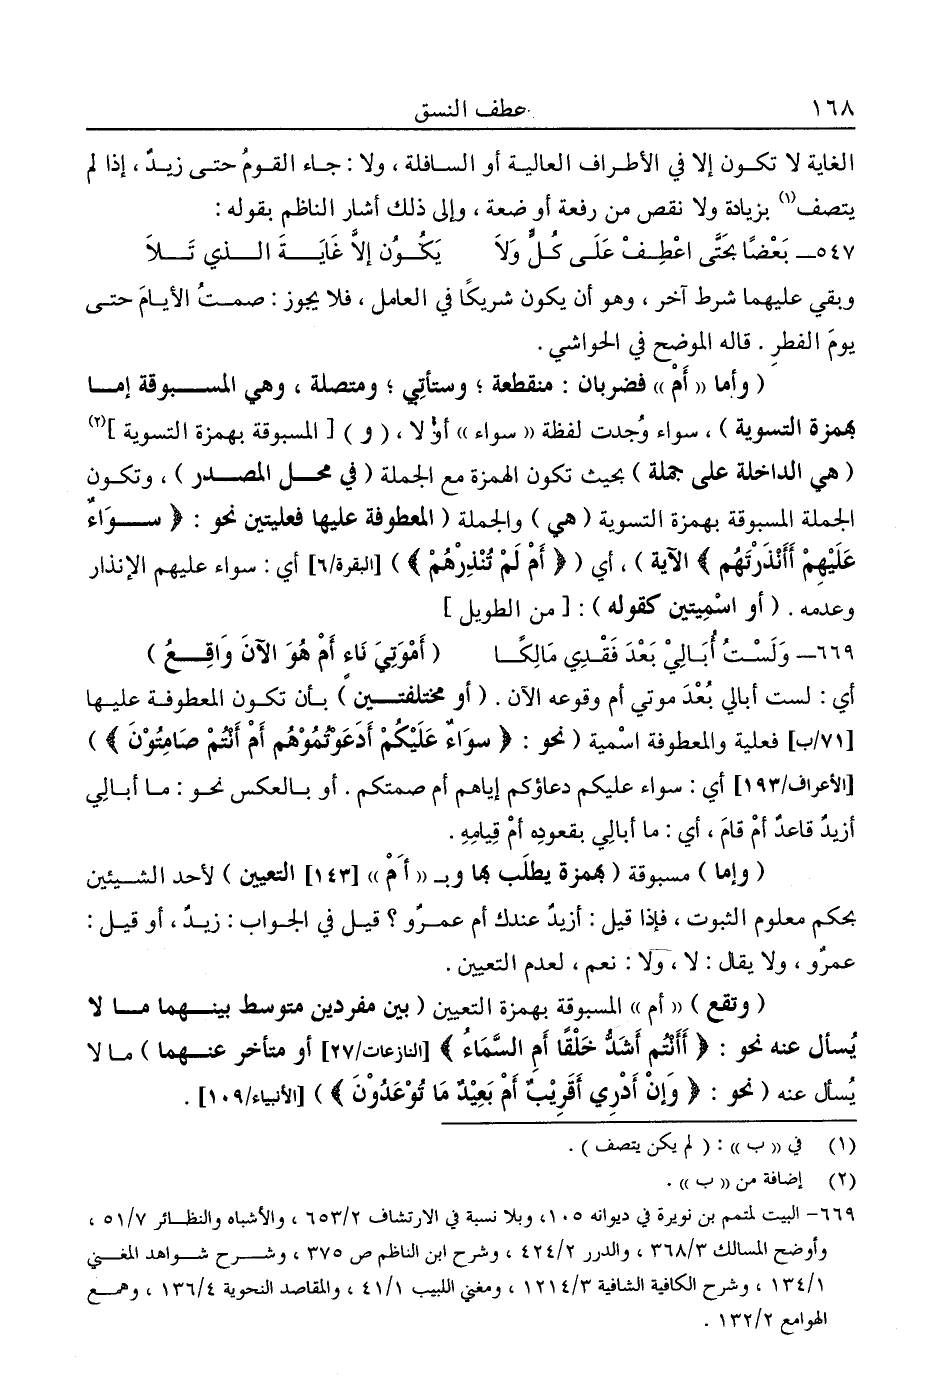 ١٦٨ عطف النسق
الغاية لا تكون إلا في الأطراف العالية أو السافلة ، ولا : جاء القومُ حتى زيدٌ ، إذا لم
يتصف(١) بزيادة ولا نقص من رفعة أو ضعة ، وإلى ذلك أشار الناظم بقوله :
٥٤٧ــ بَعْضًا بحَتَّى اعْطِفْ عَلَى كُلٍّ وَلاَ يَكُوْن إلاَّ غَايَةَ الـذي تَـلاَ
وبقي عليهما شرط آخر ، وهو أن يكون شريكًا في العامل ، فلا يجوز : صمتُ الأيامَ حتى
يومَ الفطرِ . قاله الموضح في الحواشي .
( وأما « أَمْ » فضربان : منقطعة ؛ وستأتي ؛ ومتصلة ، وهي المسبوقة إما
بهمزة التسوية ) ، سواء وُجدت لفظة « سواء » أوْ لا ، ( و ) [ المسبوقة بهمزة التسوية ](٢)
( هي الداخلة على جملة ) بحيث تكون الهمزة مع الجملة ( في محل المصدر ) ، وتكون
الجملة المسبوقة بهمزة التسوية ( هي ) والجملة ( المعطوفة عليها فعليتين نحو : ﴿ سَوَاءٌ
عَلَيْهِمْ أَأَنْذَرْتَهُم ﴾ الآية ) ، أي ( ﴿ أَمْ لَمْ تُنْذِرْهُمْ ﴾ ) [البقرة/٦] أي : سواء عليهم الإنذار
وعدمه . ( أو اسْمِيتين كقوله ) : [ من الطويل ]
٦٦٩ــ وَلَسْتُ أُبَالِيْ بَعْدَ فَقْدِي مَالِكًا ( أَمْوَتِيَ نَاءٍ أَمْ هُوَ الآنَ وَاقِعُ )
أي : لست أبالي بُعْدَ موتي أم وقوعه الآن . ( أو مختلفتين ) بأن تكون المعطوفة عليها
[٧١/ب] فعلية والمعطوفة اسْمية ( نحو : ﴿ سوَاءٌ عَلَيْكُمْ أَدَعَوْتُمُوْهُم أَمْ أَنْتُمْ صَامِتُوْنَ ﴾ )
[الأعراف/١٩٣] أي : سواء عليكم دعاؤكم إياهم أم صمتكم . أو بالعكس نحو : ما أبالي
أزيدٌ قاعدٌ أمْ قامَ ، أي : ما أبالي بقعودِه أمْ قِيامِهِ .
( وإما ) مسبوقة ( بهمزة يطلَب بها وبـ « أَمْ » [١٤٣] التعيين ) لأحد الشيئين
بحكم معلوم الثبوت ، فإذا قيل : أزيدٌ عندك أم عمرٌو ؟ قيل في الجواب : زيدٌ ، أو قيل :
عمرٌو ، ولا يقال : لا ، ولا : نعم ، لعدم التعيين .
( وتقع ) « أم » المسبوقة بهمزة التعيين ( بين مفردين متوسط بينهما ما لا
يُسأل عنه نحو : ﴿ أَأَنْتُم أَشَدُّ خَلْقًا أَمِ السَّمَاءُ ﴾ [النازعات/٢٧] أو متأخر عنهما ) ما لا
يُسأل عنه ( نحو : ﴿ وَإِنْ أَدْرِي أَقَرِيْبٌ أَمْ بَعِيْدٌ مَا تُوْعَدُوْنَ ﴾ ) [الأنبياء/١٠٩] .
(١) في « ب » : ( لم يكن يتصف ) .
(٢) إضافة من « ب » .
٦٦٩- البيت لمتمم بن نويرة في ديوانه ١٠٥، وبلا نسبة في الارتشاف ٦٥٣/٢ ، والأشباه والنظائر ٥١/٧ ،
وأوضح المسالك ٣٦٨/٣ ، والدرر ٤٢٤/٢ ، وشرح ابن الناظم ص ٣٧٥ ، وشرح شواهد المغني
١٣٤/١ ، وشرح الكافية الشافية ١٢١٤/٣ ، ومغني اللبيب ٤١/١ ، والمقاصد النحوية ١٣٦/٤ ، وهمع
الهوامع ١٣٢/٢ .